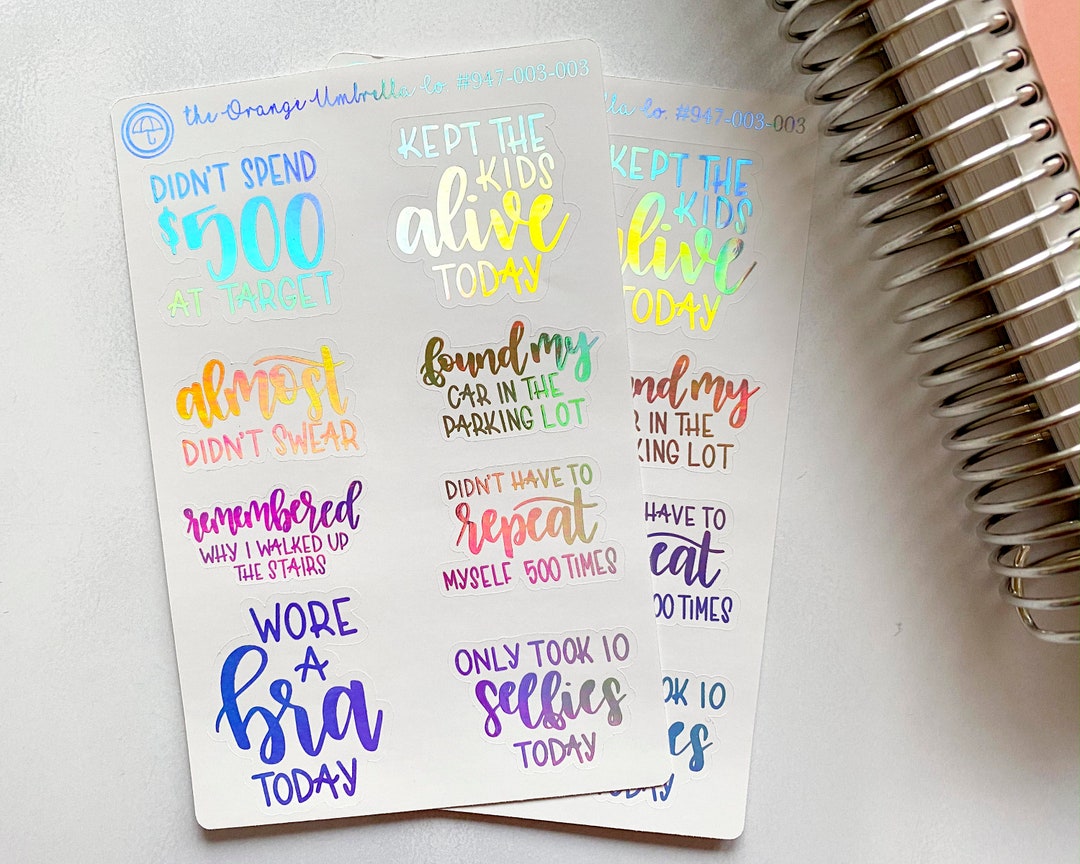 the Orange Umbrella Co. #947-003-003
DIDN'T SPEND
$500
AT TARGET
KEPT THE
KIDS
alive
TODAY
almost
DIDN'T SWEAR
found my
CAR IN THE
PARKING LOT
remembered
WHY I WALKED UP
THE STAIRS
DIDN'T HAVE TO
repeat
MYSELF 500 TIMES
WORE
A
bra
TODAY
ONLY TOOK 10
selfies
TODAY
Co. #947-003-003
KEPT THE
KIDS
alive
TODAY
my
IN THE
LOT
HAVE TO
TIMES
10
TODAY